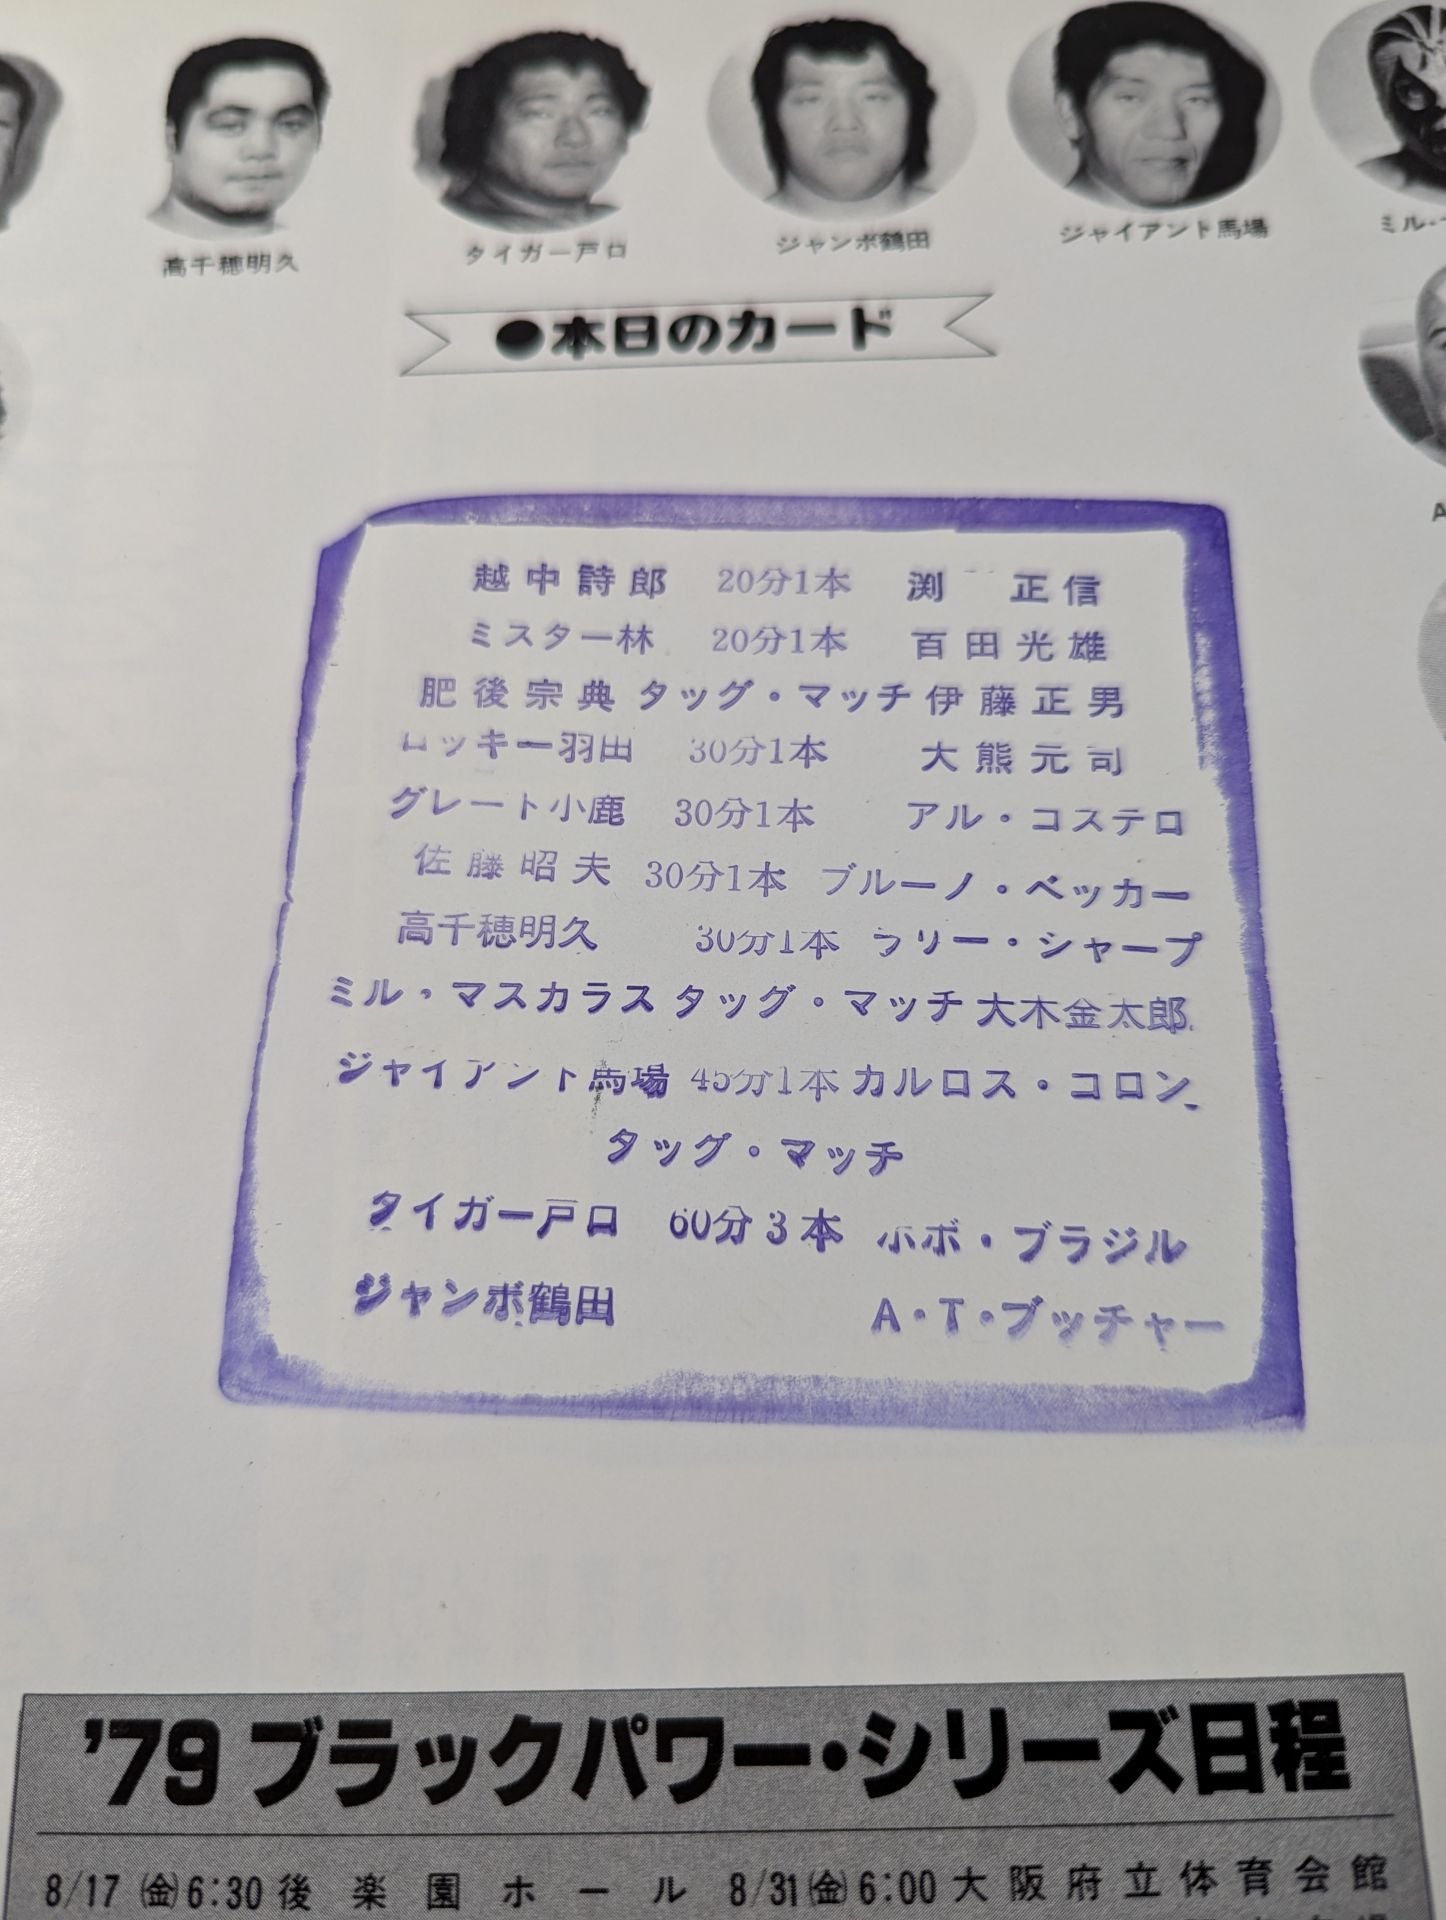 高千穂明久
タイガー戸口
ジャンボ鶴田
ジャイアント馬場
ミル・
●本日のカード
越中詩郎 20分1本 渕 正信
ミスター林 20分1本 百田光雄
肥後宗典 タッグ・マッチ 伊藤正男
ロッキー羽田 30分1本 大熊元司
グレート小鹿 30分1本 アル・コステロ
佐藤昭夫 30分1本 ブルーノ・ベッカー
高千穂明久 30分1本 ラリー・シャープ
ミル・マスカラス タッグ・マッチ 大木金太郎
ジャイアント馬場 45分1本 カルロス・コロン
タッグ・マッチ
タイガー戸口 60分3本 ボボ・ブラジル
ジャンボ鶴田 A・T・ブッチャー
A
'79ブラックパワー・シリーズ日程
8/17㈮6:30後楽園ホール 8/31㈮6:00大阪府立体育会館